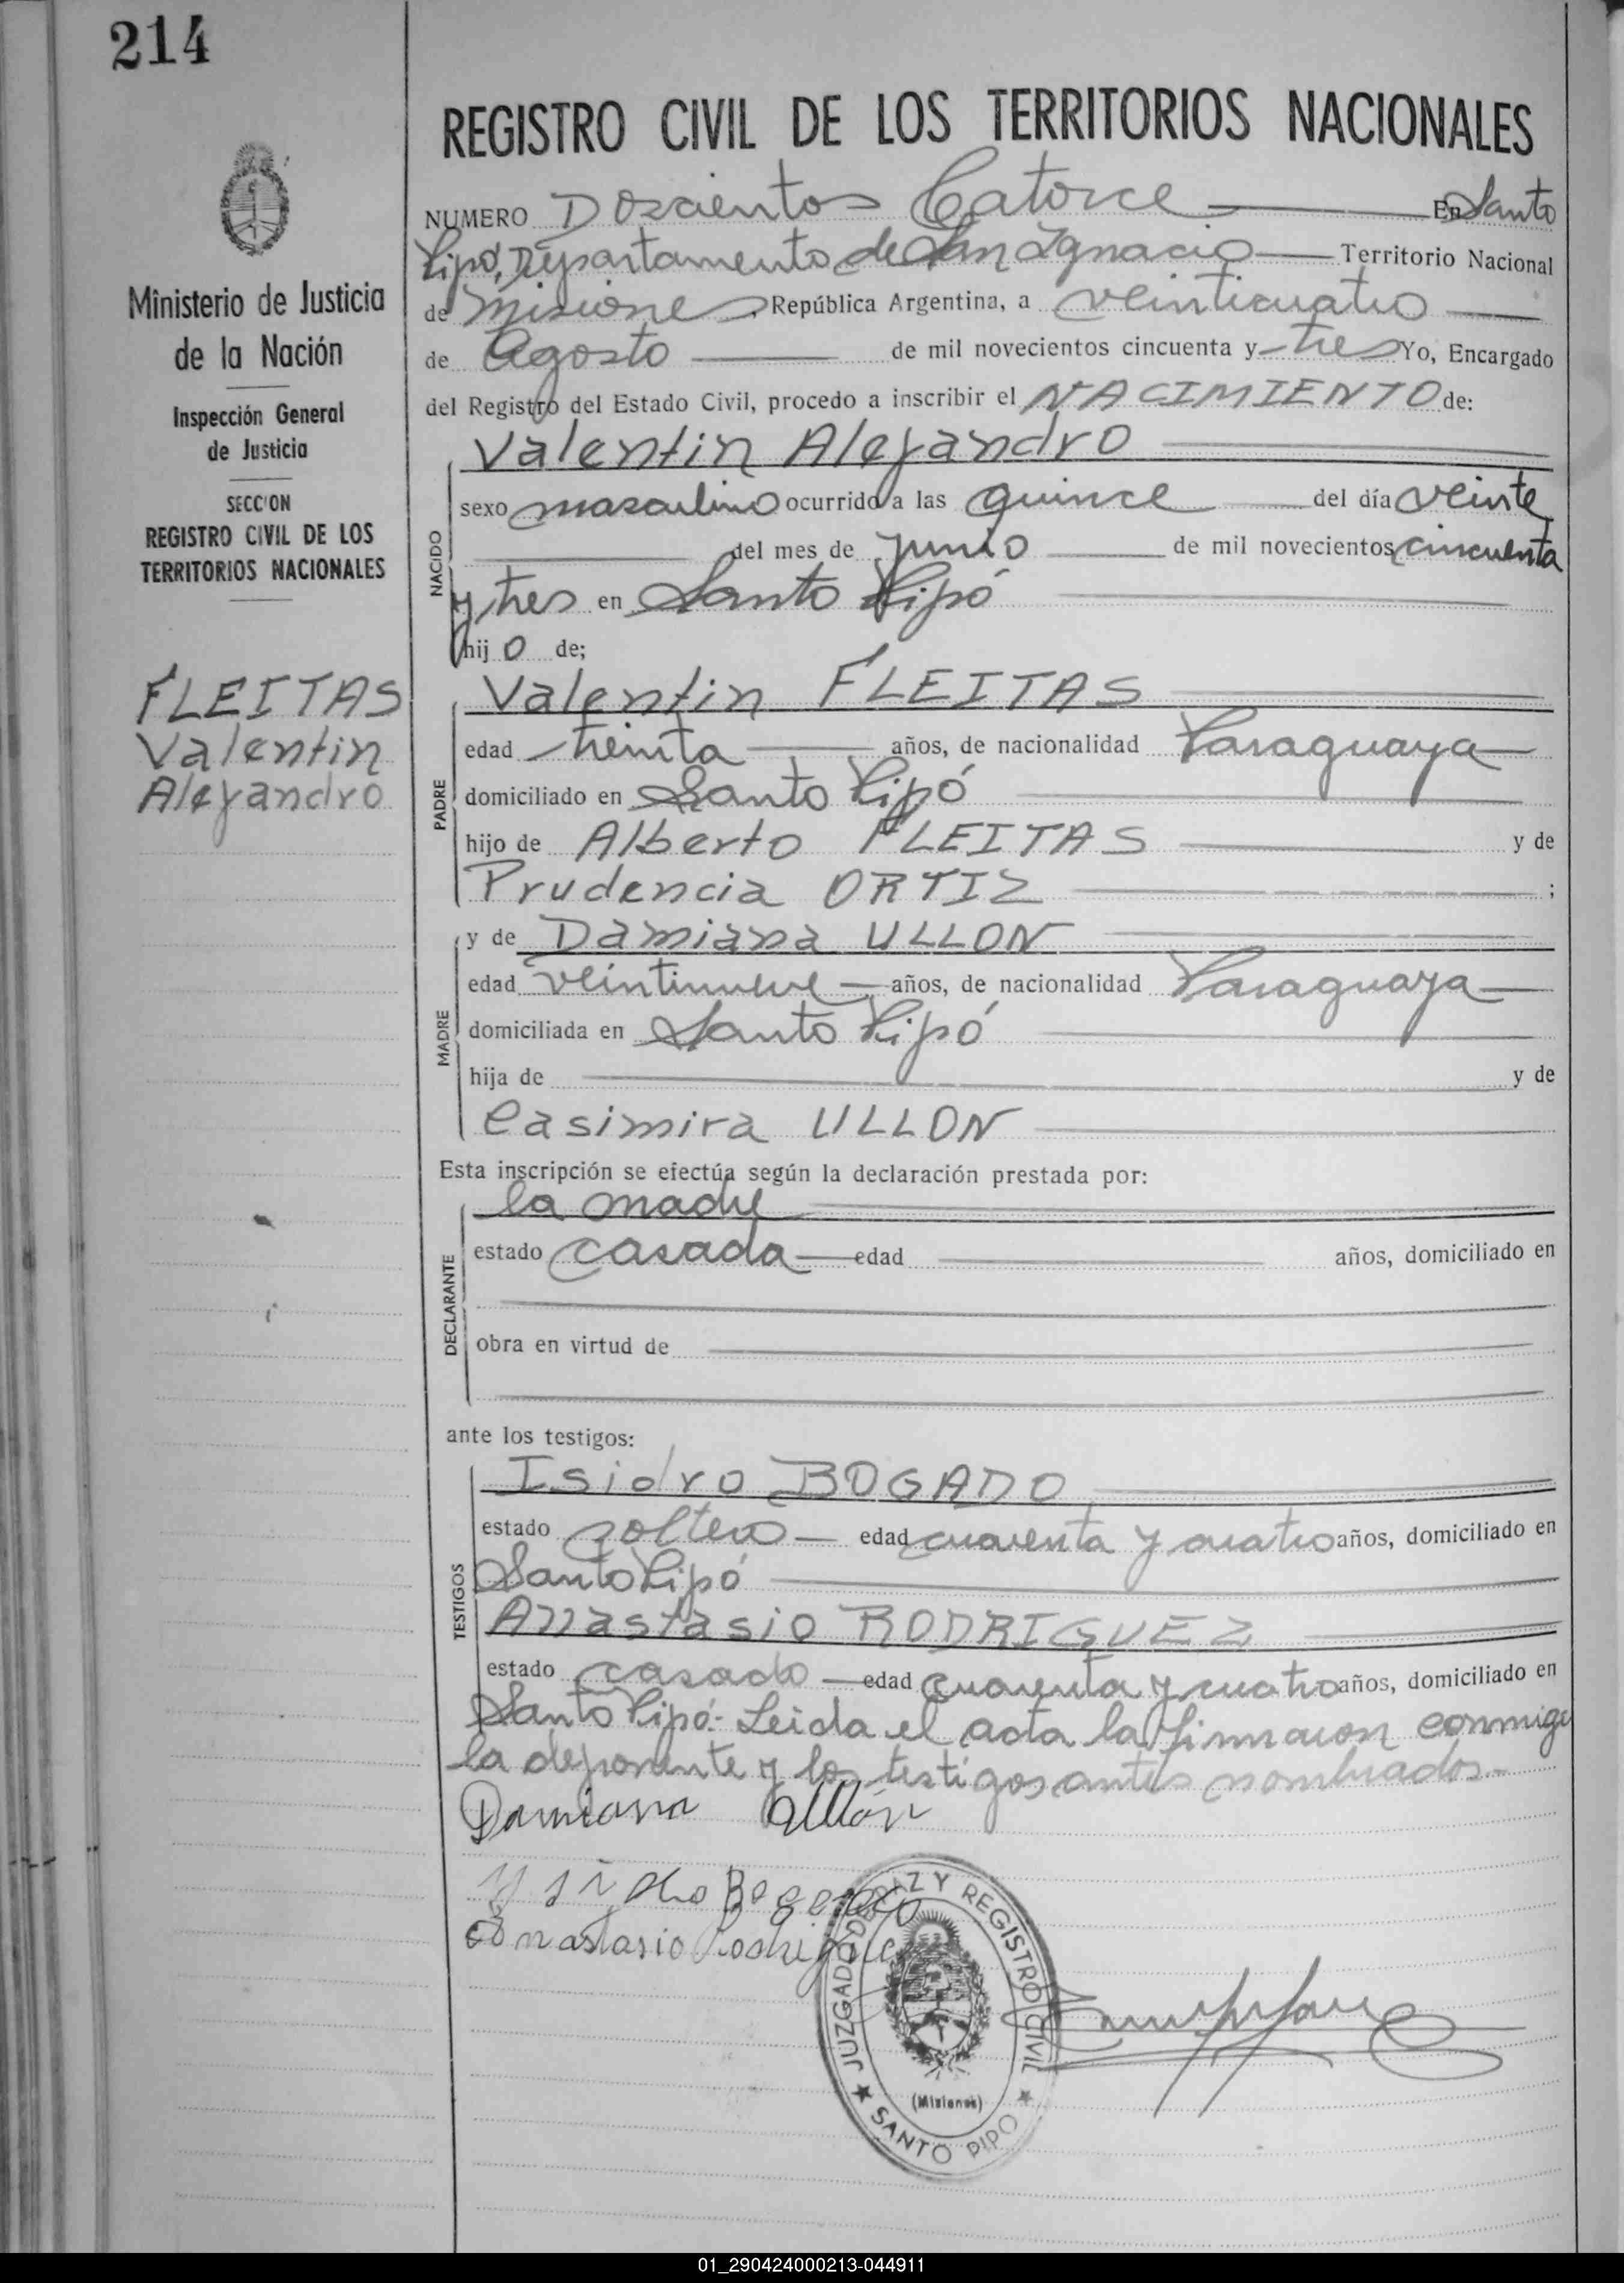 214
Ministerio de Justicia
de la Nación
Inspección General
de Justicia
SECCION
REGISTRO CIVIL DE LOS
TERRITORIOS NACIONALES
FLEITAS
Valentin
Alejandro
REGISTRO CIVIL DE LOS TERRITORIOS NACIONALES
NUMERO Doscientos Catorce En Santo
Pipó, Departamento de San Ignacio Territorio Nacional
de Misiones República Argentina, a veinticuatro
de Agosto de mil novecientos cincuenta y tres Yo, Encargado
del Registro del Estado Civil, procedo a inscribir el NACIMIENTO de:
Valentin Alejandro
NACIDO
sexo masculino ocurrido a las quince del día veinte
del mes de junio de mil novecientos cincuenta
y tres en Santo Pipó
hijo de;
Valentin FLEITAS
PADRE
edad treinta años, de nacionalidad Paraguaya
domiciliado en Santo Pipó
hijo de Alberto FLEITAS y de
Prudencia ORTIZ ;
y de Damiana ULLON
MADRE
edad veintinueve años, de nacionalidad Paraguaya
domiciliada en Santo Pipó
hija de y de
Casimira ULLON
Esta inscripción se efectúa según la declaración prestada por:
la madre
DECLARANTE
estado casada edad años, domiciliado en
obra en virtud de
ante los testigos:
Isidro BOGADO
TESTIGOS
estado soltero edad cuarenta y cuatro años, domiciliado en
Santo Pipó
Anastasio RODRIGUEZ
estado casado edad cuarenta y cuatro años, domiciliado en
Santo Pipó.- Leida el acta la firmaron conmigo
la deponente y los testigos antes nombrados.-
Damiana Ullón
Ysidro Bogado
Anastasio Rodriguez
JUZGADO DE PAZ Y REGISTRO CIVIL
(Misiones)
★ SANTO PIPO ★
01_290424000213-044911